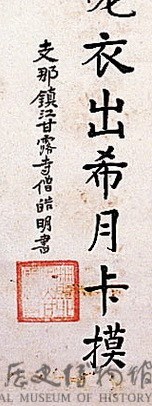 衣出希月卡摸
支那鎮江甘露寺僧皓明書
歷史博物館
AL MUSEUM OF HISTORY